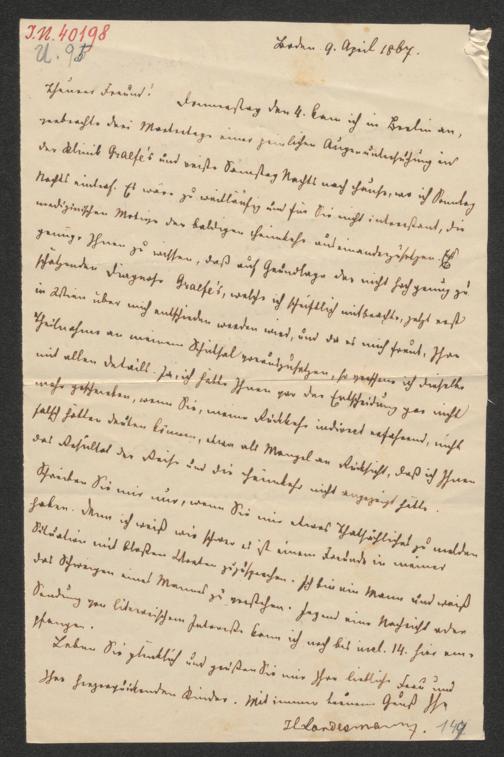 I.N. 40198
U. 95
Baden 9. April 1867.
Theurer Freund! Donnerstag den 4. kam ich in Berlin an,
verbrachte drei Martertage einer peinlichen Augenuntersuchung in
der Klinik Graefe's und reiste Samstag Nachts nach Hause, wo ich Sonntag
Nachts eintraf. Es wäre zu weitläufig und für Sie nicht interessant, die
medizinischen Motive der baldigen Heimkehr auseinanderzusetzen. Es
genüge Ihnen zu wissen, daß auf Grundlage der nicht hoch genug zu
schätzenden Diagnose Graefe's, welche ich schriftlich mitbrachte, jetzt erst
in Wien über mich entschieden werden wird, und da es mich freut, Ihre
Theilnahme an meinem Schicksal vorauszusetzen, so verschone ich dieselbe
mit allen Details. Ja, ich hätte Ihnen vor der Entscheidung gar nicht
mehr geschrieben, wenn Sie, meine Rückkehr indirect erfahrend, nicht
falsch hätten deuten können, etwa als Mangel an Rücksicht, daß ich Ihnen
das Resultat der Reise und die Heimkehr nicht angezeigt hätte.
Schreiben Sie mir nur, wenn Sie mir etwas Thatsächliches zu melden
haben. Denn ich weiß wie schwer es ist einem Freunde in meiner
Situation mit bloßen Worten zuzusprechen. Ich bin ein Mann und weiß
das Schweigen eines Mannes zu verstehen. Irgend eine Nachricht oder
Sendung von literarischem Interesse kann ich noch bis incl. 14. hier em-
pfangen.
Leben Sie glücklich und grüßen Sie mir Ihre liebliche Frau und
Ihre herzerquickenden Kinder. Mit immer treuem Gruß Ihr
H Landesmann.
149